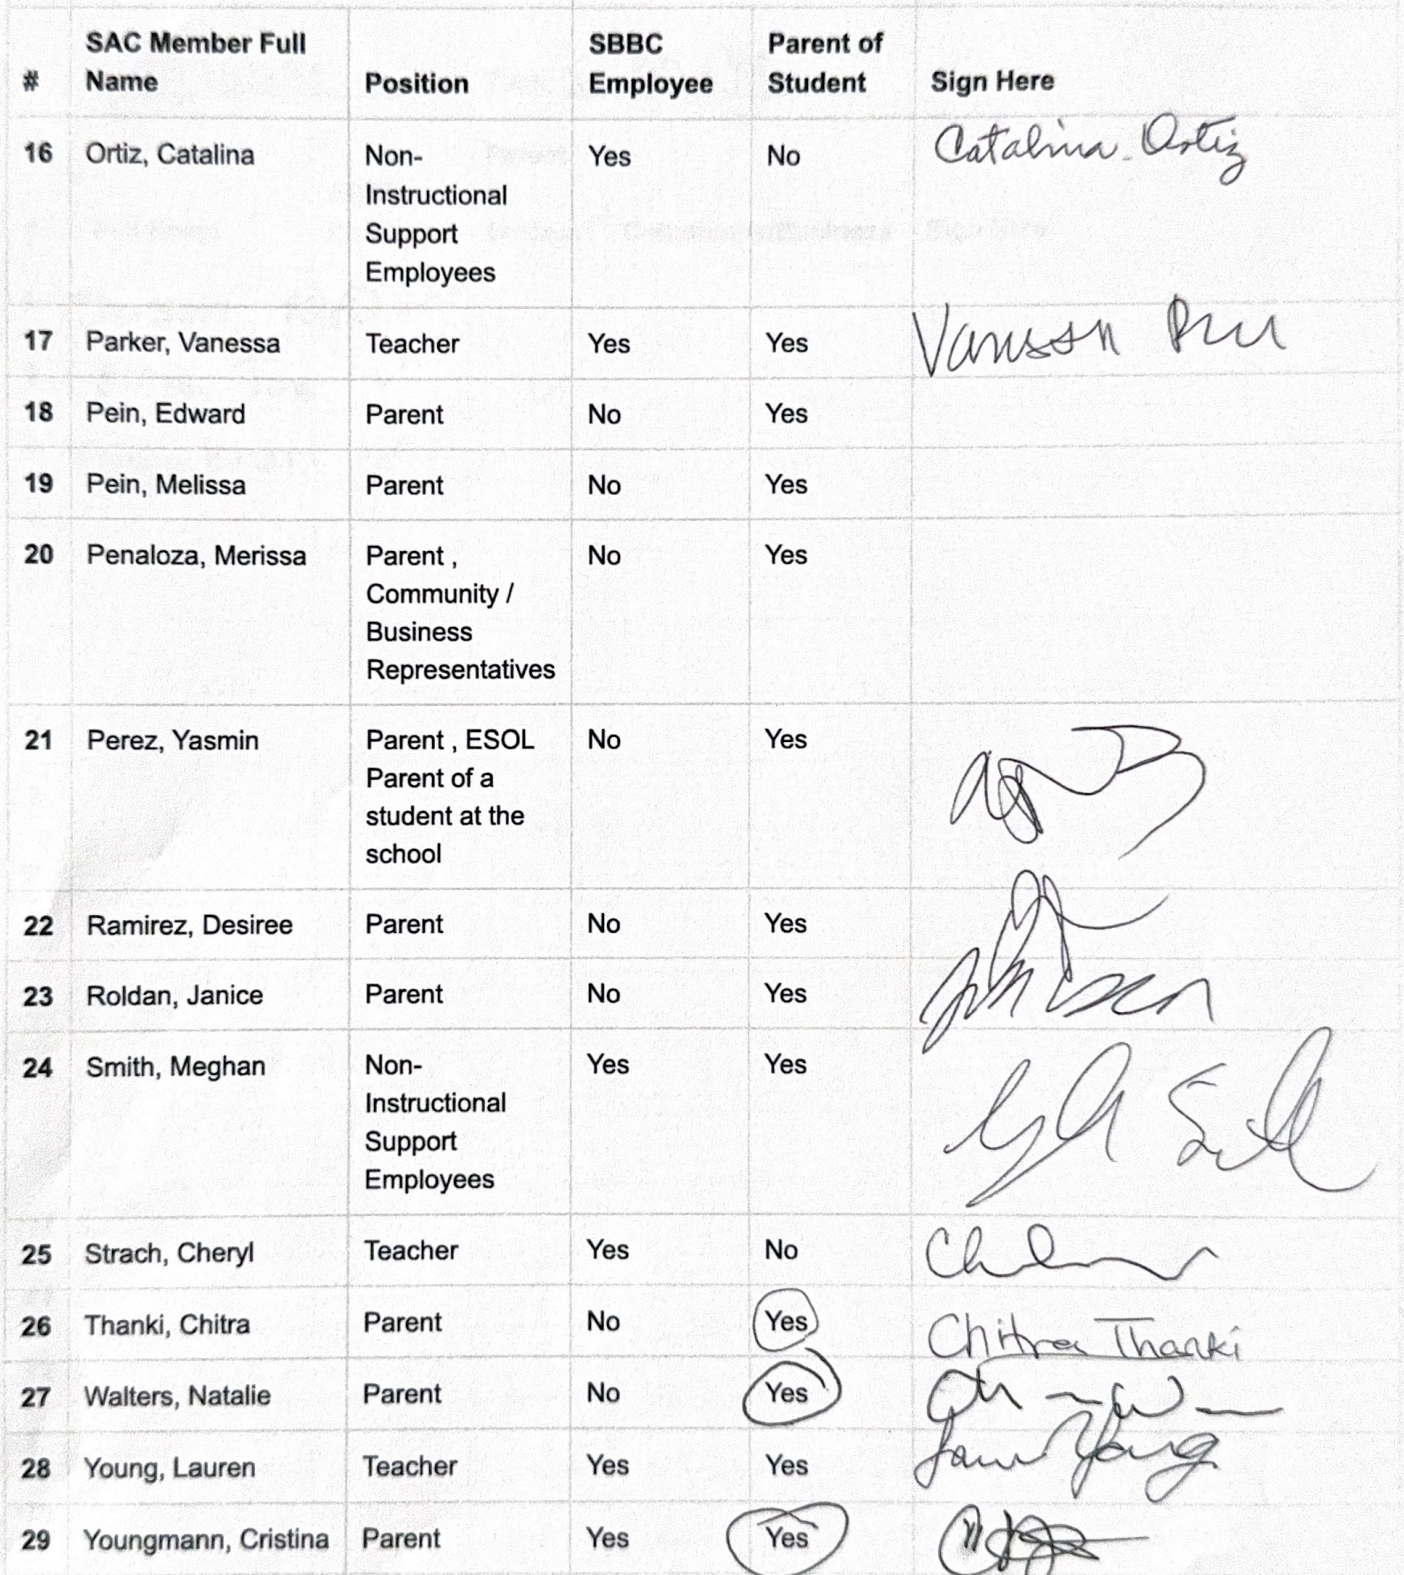 # SAC Member Full Name Position SBBC Employee Parent of Student Sign Here
16 Ortiz, Catalina Non- Yes No Catalina Ortiz
Instructional
Support
Employees
17 Parker, Vanessa Teacher Yes Yes Vanessa
18 Pein, Edward Parent No Yes
19 Pein, Melissa Parent No Yes
20 Penaloza, Merissa Parent , No Yes
Community /
Business
Representatives
21 Perez, Yasmin Parent , ESOL No Yes
Parent of a
student at the
school
22 Ramirez, Desiree Parent No Yes
23 Roldan, Janice Parent No Yes
24 Smith, Meghan Non- Yes Yes
Instructional
Support
Employees
25 Strach, Cheryl Teacher Yes No
26 Thanki, Chitra Parent No Yes Chitra Thanki
27 Walters, Natalie Parent No Yes
28 Young, Lauren Teacher Yes Yes Young
29 Youngmann, Cristina Parent Yes Yes